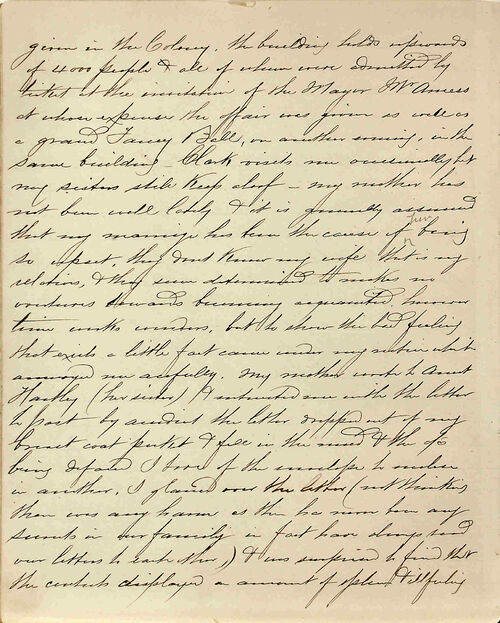 given in the Colony, the building holds upwards
of 4000 people & all of whom were admitted by
ticket at the invitation of the Mayor Mr Amess
at whose expense the affair was given as well as
a grand Fancy Ball, on another evening, in the
same building – Clark visits me occasionally but
my sisters still keep aloof – my mother has
not been well lately & it is generally assumed
that my marriage has been the cause of her being
so upset. they dont know my wife that is my
relations, & they seem determined to makes no
overtures towards becoming acquainted, however
time works wonders, but to show the bad feeling
that exists a little fact came under my notice which
annoyed me awfully. My mother wrote to Aunt
Hartley (her sister) & entrusted me with the letter
to post by accident the letter dropped out of my
breast coat pocket & fell in the mud & the
being defaced I tore of the envelope to enclose
in another, I glanced over the letter (not thinking
there was any harm as there has never been any
secrets in our family in fact have always read
our letters to each other,) & was surprised to find that
the contents displayed a amount of spleen & ill feeling